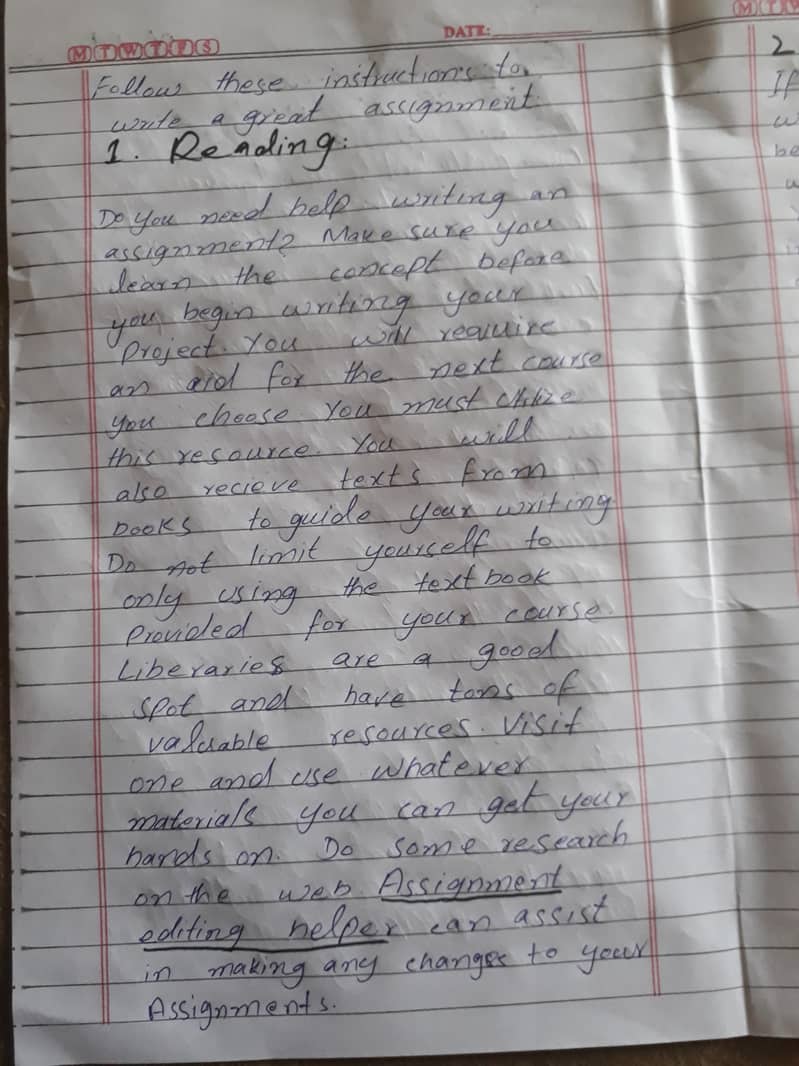 M T W T F S
DATE:
Follow these instructions to
write a great assignment.
1. Reading:
Do you need help writing an
assignment? Make sure you
learn the concept before
you begin writing your
Project. You will reauire
an aid for the next course
you choose. You must utilize
this resource. You will
also recieve texts from
books to guide your writing
Do not limit yourself to
only using the textbook
Provided for your course.
Liberaries are a good
spot and have tons of
valuable resources. Visit
one and use whatever
materials you can get your
hands on. Do some research
on the web. Assignment
editing helper can assist
in making any changes to your
Assignments.
M T W
2
If
w
be